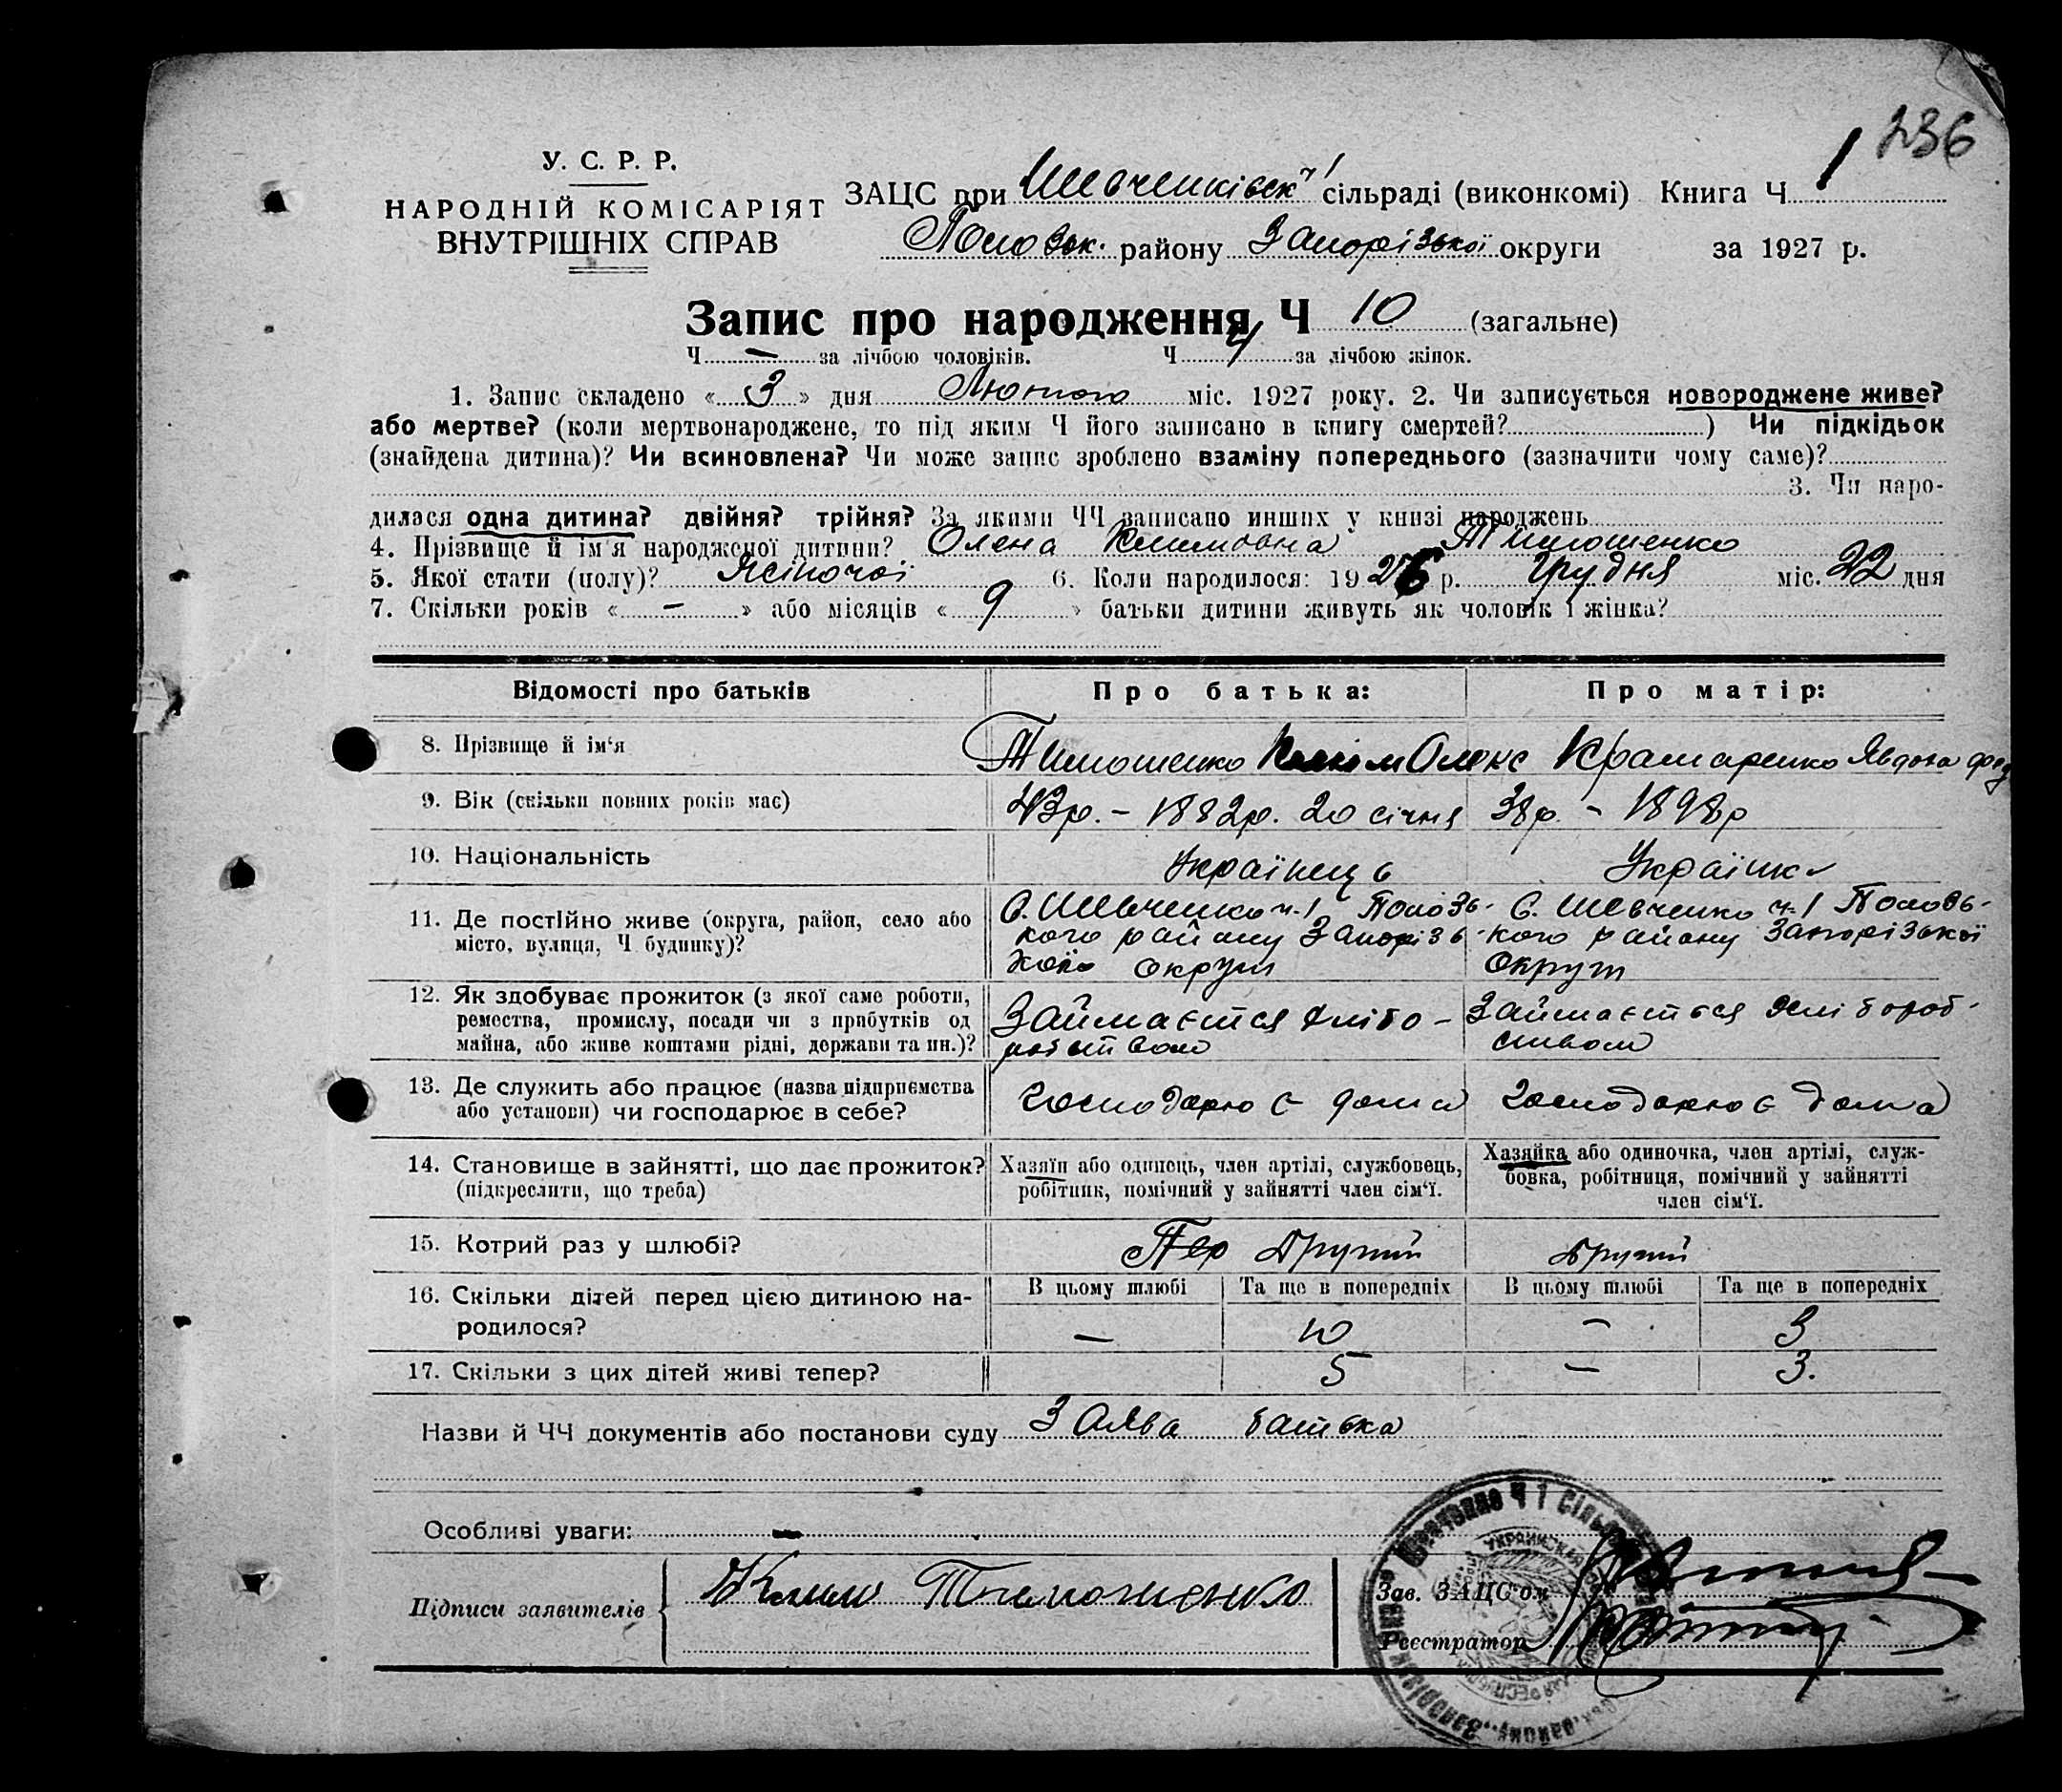 236
У. С. Р. Р.
НАРОДНІЙ КОМІСАРІЯТ
ВНУТРІШНІХ СПРАВ
ЗАЦС при Шевченківск ч1 сільраді (виконкомі) Книга Ч 1
Полозьк. району Запорізької округи за 1927 р.
Запис про народження Ч 10 (загальне)
Ч — за лічбою чоловіків. Ч 4 за лічбою жінок.
1. Запис складено « 3 » дня Лютого міс. 1927 року. 2. Чи записується новороджене живе?
або мертве? (коли мертвонароджене, то під яким Ч його записано в книгу смертей? ) Чи підкідьок
(знайдена дитина)? Чи всиновлена? Чи може запис зроблено взаміну попереднього (зазначити чому саме)?
3. Чи наро-
дилася одна дитина? двійня? трійня? За якими ЧЧ записано инших у книзі народжень
4. Прізвище й ім'я народженої дитини? Олена Климовна Тимошенко
5. Якої стати (полу)? Жіночої 6. Коли народилося: 1926 р. Грудня міс. 22 дня
7. Скільки років « — » або місяців « 9 » батьки дитини живуть як чоловік і жінка?
Відомості про батьків Про батька: Про матір:
8. Прізвище й ім‘я Тимошенко Клим Олекс Крамаренко Явдоха Фед
9. Вік (скільки повних років має) 43р. – 1882р. 20 січня 38р. – 1898р
10. Національність Українець Українка
11. Де постійно живе (округа, район, село або
місто, вулиця, Ч будинку)?
С. Шевченко ч.1 Полозь-
кого району Запорізь-
кої округи
С. Шевченко ч.1 Полозь-
кого району Запорізької
округи
12. Як здобуває прожиток (з якої саме роботи,
ремества, промислу, посади чи з прибутків од
майна, або живе коштами рідні, держави та ин.)?
Займається хлібо-
робством
Займається хлібороб-
ством
13. Де служить або працює (назва підприємства
або установи) чи господарює в себе?
господарює дома
господарює дома
14. Становище в зайнятті, що дає прожиток?
(підкреслити, що треба)
Хазяїн або одинець, член артілі, службовець,
робітник, помічний у зайнятті член сім‘ї.
Хазяйка або одиночка, член артілі, служ-
бовка, робітниця, помічний у зайнятті
член сім‘ї.
15. Котрий раз у шлюбі? Пер Другий Другий
16. Скільки дітей перед цією дитиною на-
родилося?
В цьому шлюбі Та ще в попередніх В цьому шлюбі Та ще в попередніх
— 10 — 3
17. Скільки з цих дітей живі тепер? 5 — 3.
Назви й ЧЧ документів або постанови суду Заява батька
Особливі уваги: —
Підписи заявителів Клим Тимошенко
Зав. ЗАЦС'ом
Реєстратор